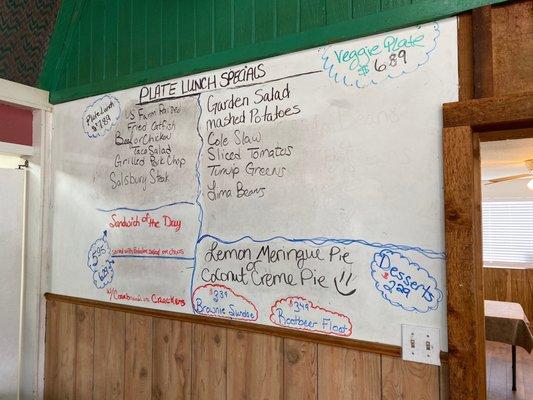 PLATE LUNCH SPECIALS
Plate Lunch
$7.89
US Farm Raised
Fried Catfish
Beef or Chicken
Taco Salad
Grilled Pork Chop
Salsbury Steak
Garden Salad
mashed Potatoes
Cole Slaw
Sliced Tomatos
Turnip Greens
Lima Beans
Veggie Plate
$6.89
Sandwich of the Day
served with Potato Salad or chips
5.95
6.29
w/ Crackers
Lemon Meringue Pie
or
Coconut Creme Pie
Desserts
$2.29
Brownie Sundae
$3.49
Rootbeer Float